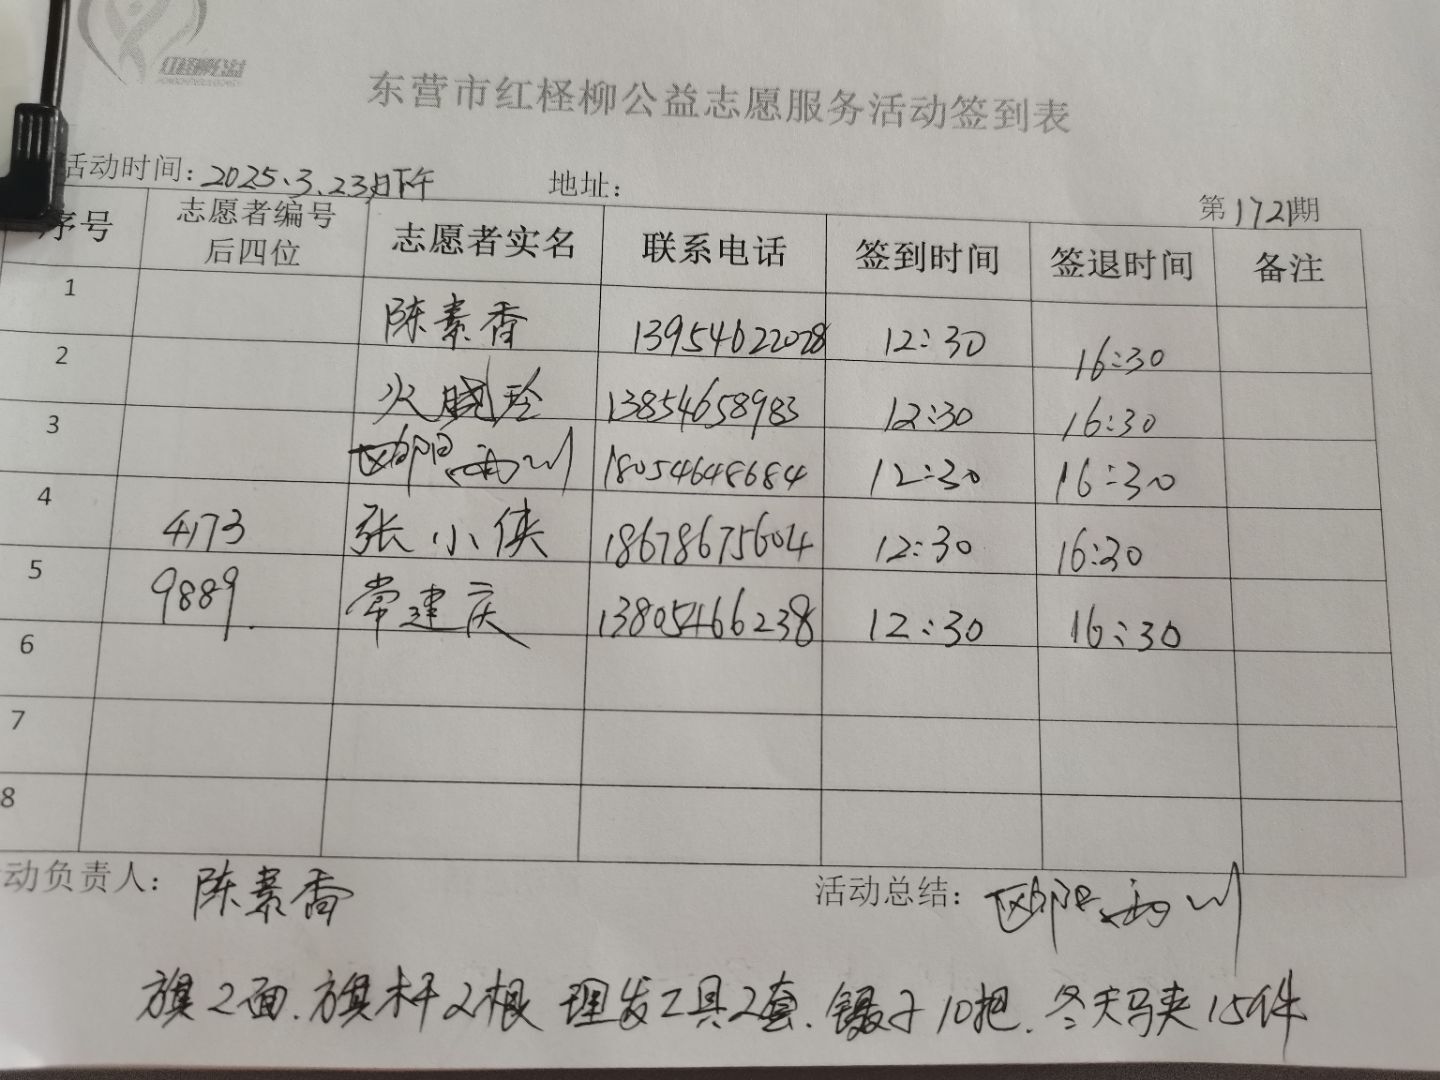 红柽柳公益
东营市红柽柳公益志愿服务活动签到表
活动时间：2025.3.23日下午 地址：
第1721期
序号 志愿者编号后四位 志愿者实名 联系电话 签到时间 签退时间 备注
1 陈素香 13954622028 12:30 16:30
2 火晓玲 13854658983 12:30 16:30
3 欧阳 18054648684 12:30 16:30
4 4173 张小侠 18678675604 12:30 16:30
5 9889. 常建庆 13805466238 12:30 16:30
6
7
8
动负责人：陈素香 活动总结：欧阳
旗2面.旗杆2根 理发工具2套.镊子10把.冬天马夹15件